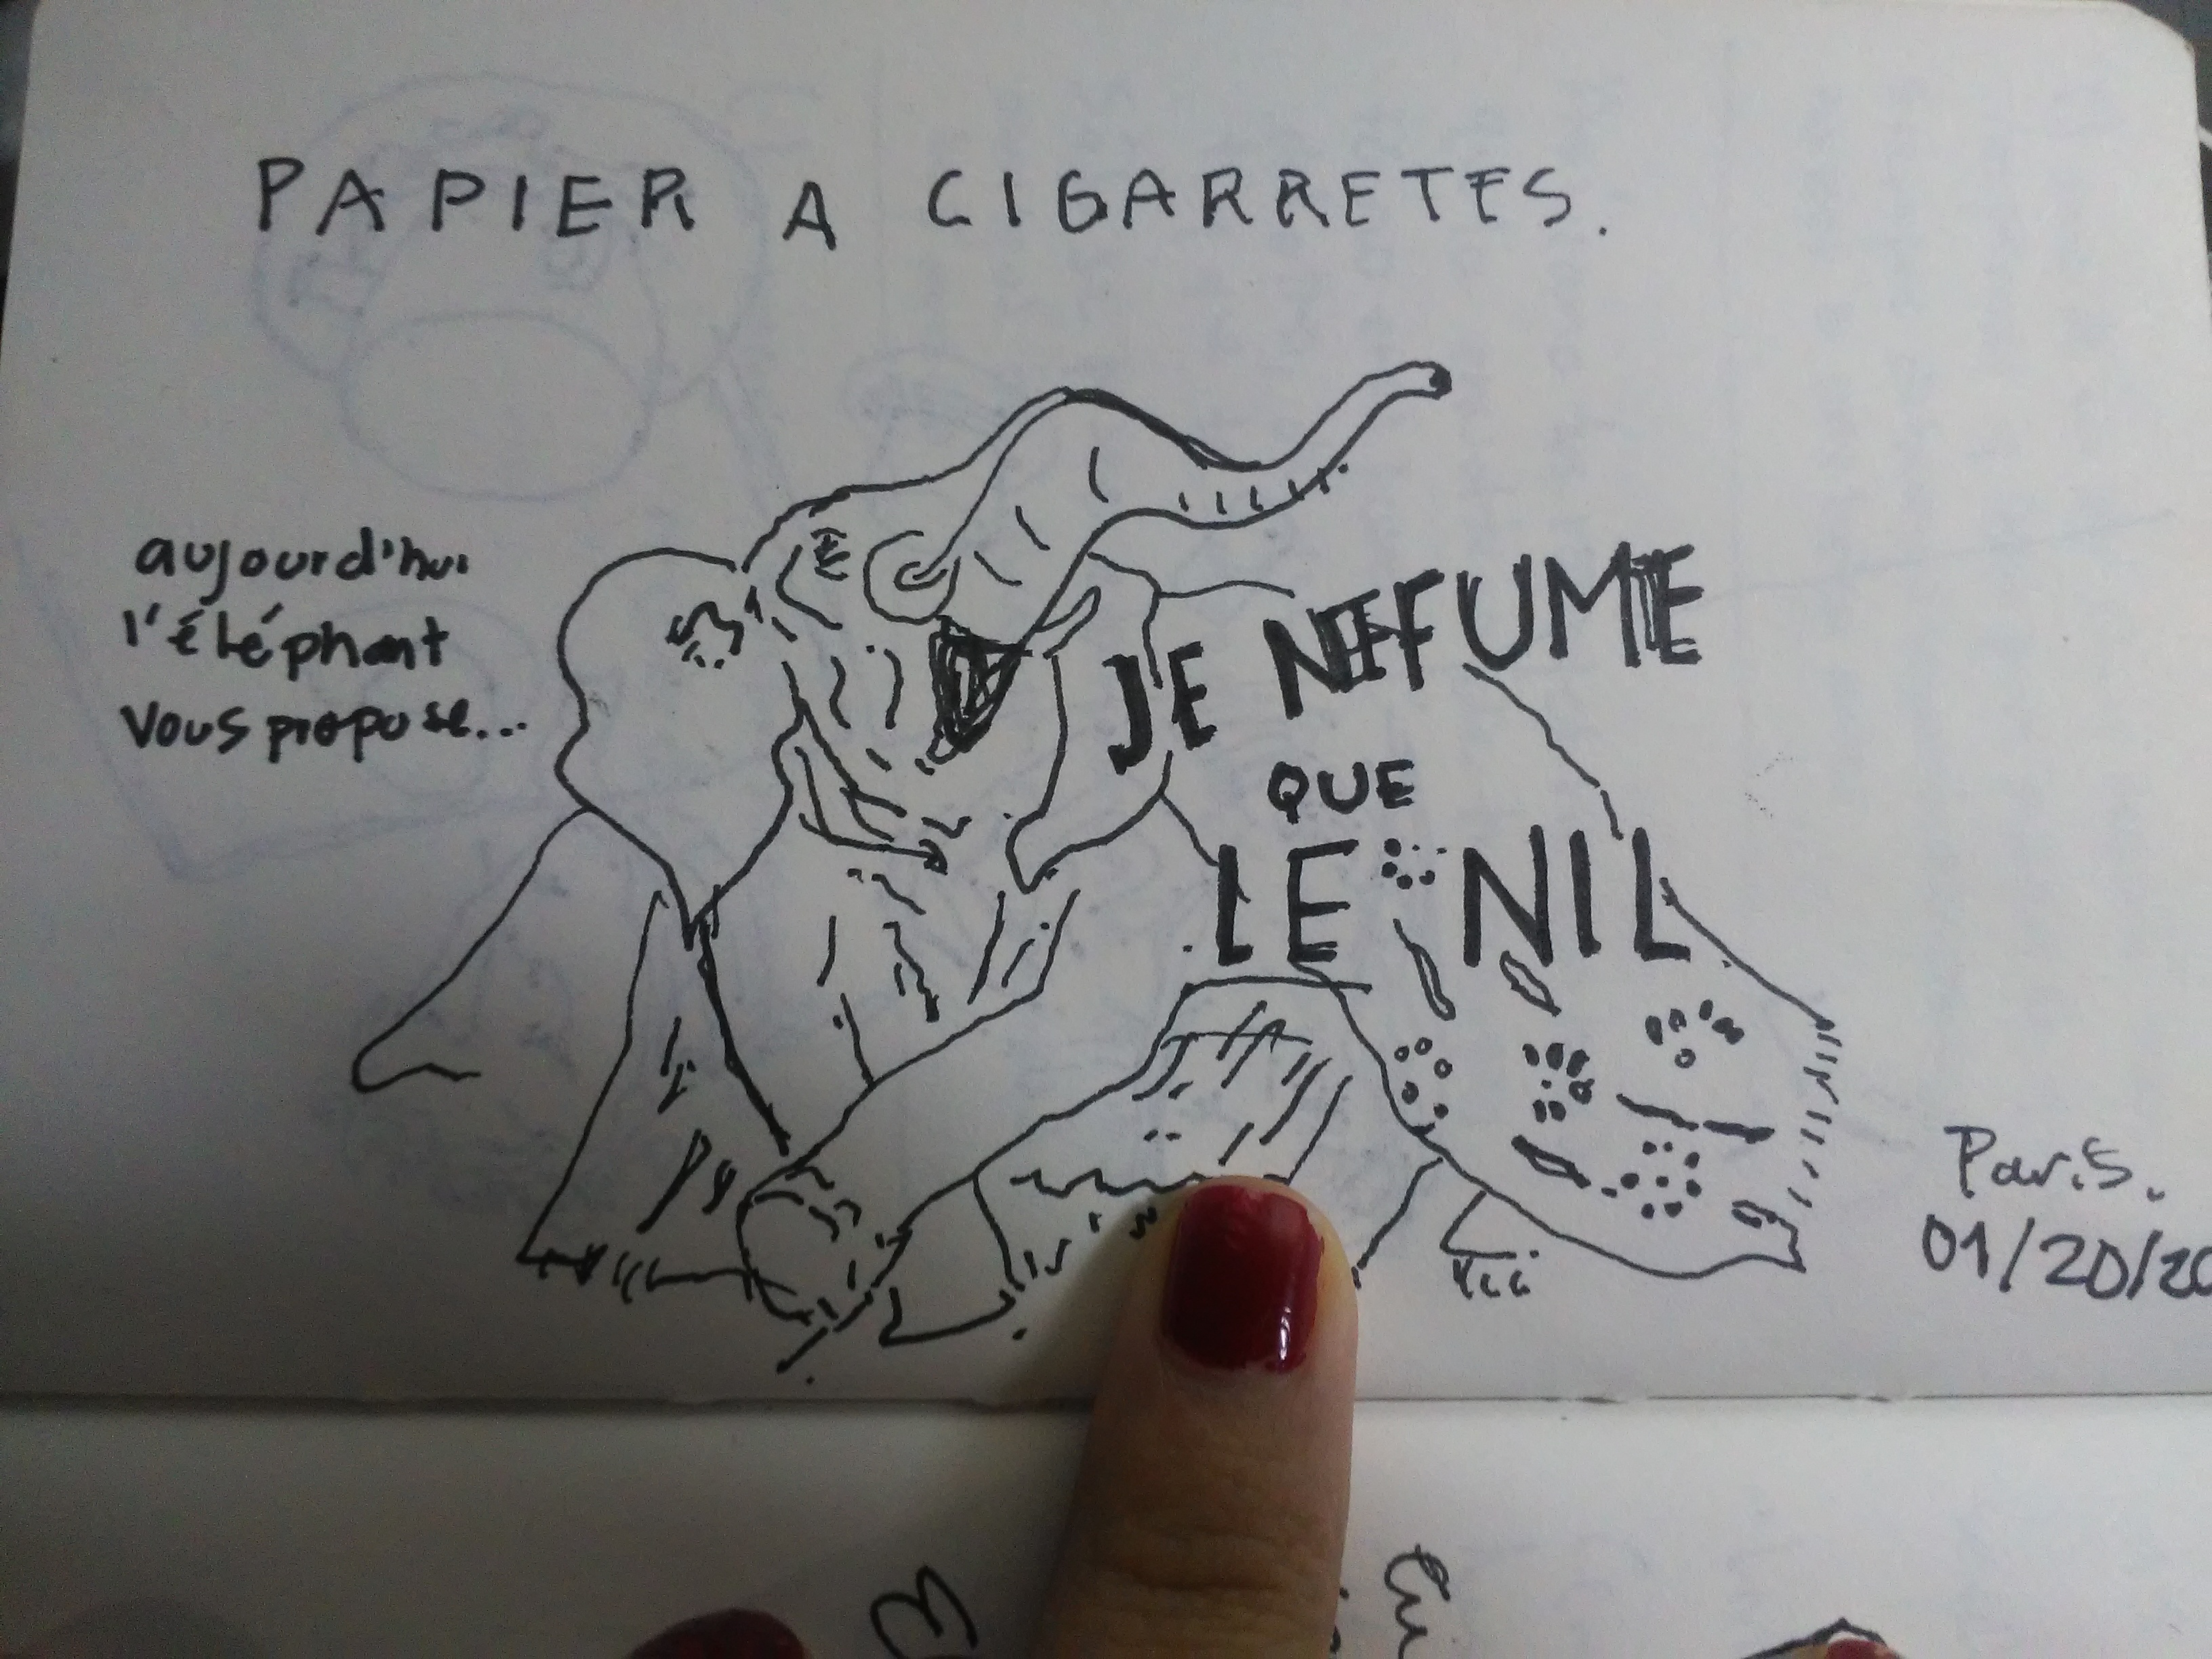 PAPIER A CIGARRETES.
aujourd'hui
l'éléphant
vous propose...
JE NE FUME
QUE
LE NIL
Paris.
01/20/20